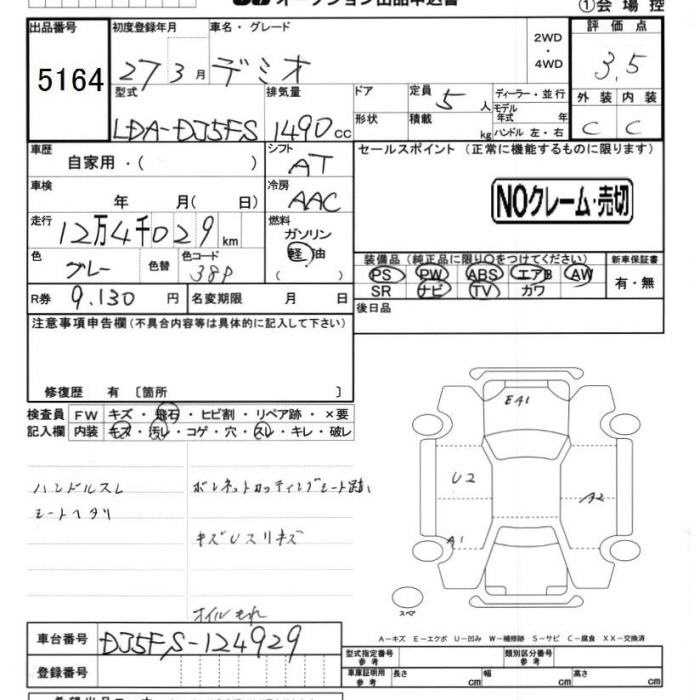 オークション出品申込書
①会場控
出品番号
5164
初度登録年月
27 3月
車名・グレード
デミオ
2WD
・
4WD
評価点
3.5
型式
LDA-DJ5FS
排気量
1490cc
ドア
形状
定員
5人
積載
kg
ディーラー・並行
モデル年式 年
ハンドル 左・右
外装 内装
C C
車歴
自家用・( )
シフト
AT
セールスポイント (正常に機能するものに限ります)
NOクレーム・売切
車検
年 月( 日)
冷房
AAC
走行
12万4千029km
燃料
ガソリン
軽油
( )
色
グレー
色替
色コード
38P
装備品(純正品に限り○をつけてください)
新車保証書
PS PW ABS エアB AW
有・無
SR ナビ TV カワ
R券 9.130円
名変期限 月 日
後日品
注意事項申告欄(不具合内容等は具体的に記入して下さい)
修復歴 有 〔箇所 〕
検査員 FW キズ・飛石・ヒビ割・リペア跡・×要
記入欄 内装 キズ・汚レ・コゲ・穴・スレ・キレ・破レ
ハンドルスレ
シートヘタリ
ボンネットカッティングシート跡
キズUスリキズ
オイルもれ
E A1
U2
A2
A1
スペア
A−キズ E−エクボ U−凹み W−補修跡 S−サビ C−腐食 XX−交換済
車台番号
DJ5FS-124929
登録番号
型式指定番号
参考
類別区分番号
参考
車庫証明用
参考
長さ cm
幅 cm
高さ cm